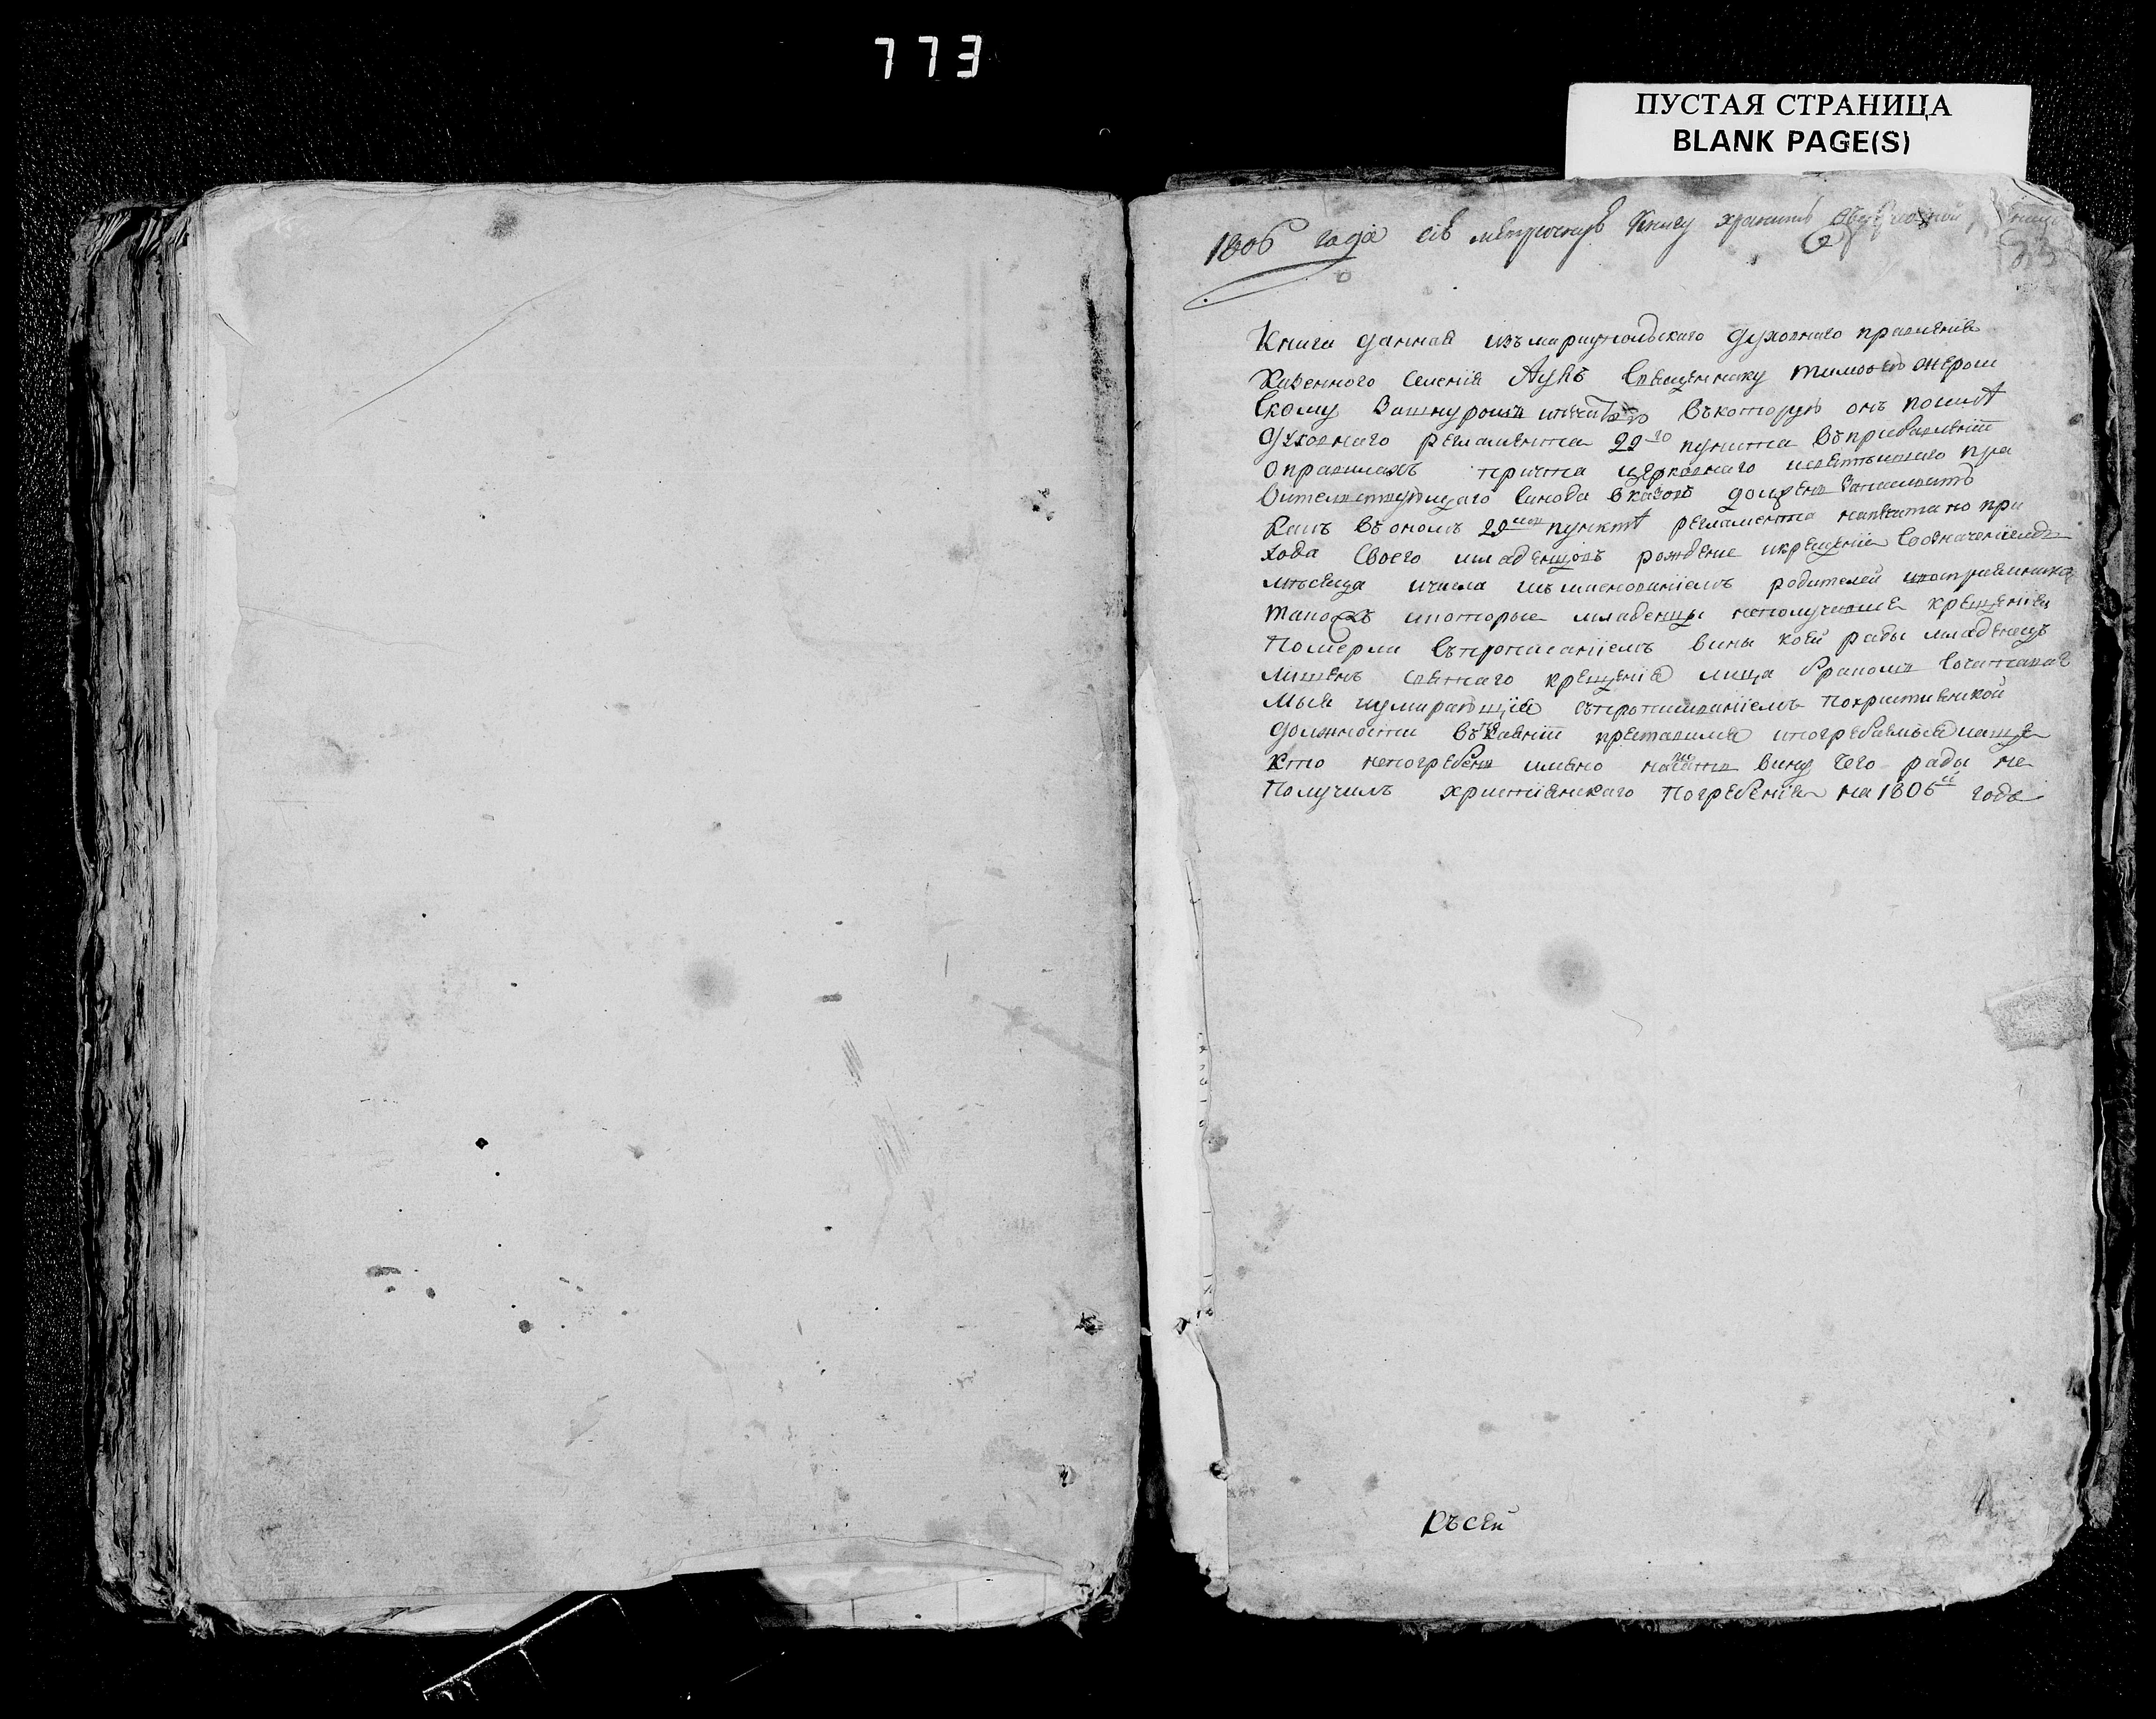 773
ПУСТАЯ СТРАНИЦА
BLANK PAGE(S)
1806 года сію метрическую книгу хранить
Книга данная изъ мариупольскаго духовнаго правленія
Казенного селенія священнику тимофею
скому за шнуромъ и печатью въ которую онъ по силѣ
духовнаго регламента 29го пункта въ прибавленіи
о правилахъ причта церковнаго и святѣйшаго пра
вительствующаго синода указовъ долженъ записывать
какъ въ ономъ 29мъ пунктѣ регламента напечатано при
хода своего младенцовъ рожденіе и крещеніе со означеніемъ
мѣсяца и числа и съ имянованіемъ родителей и восприемника
такожъ и которые младенцы не получивше крещенія
померли съ прописаніемъ вины коей ради младенецъ
лишенъ святаго крещенія лица бракомъ сочетавае
мыя и умирающія съ прописаніемъ по христіянской
должности въ покаяніи преставилися и погребаемыя и аще
кто не погребенъ имено писать вину чего ради не
получилъ христіянскаго погребенія на 1806й годъ
Къ сей